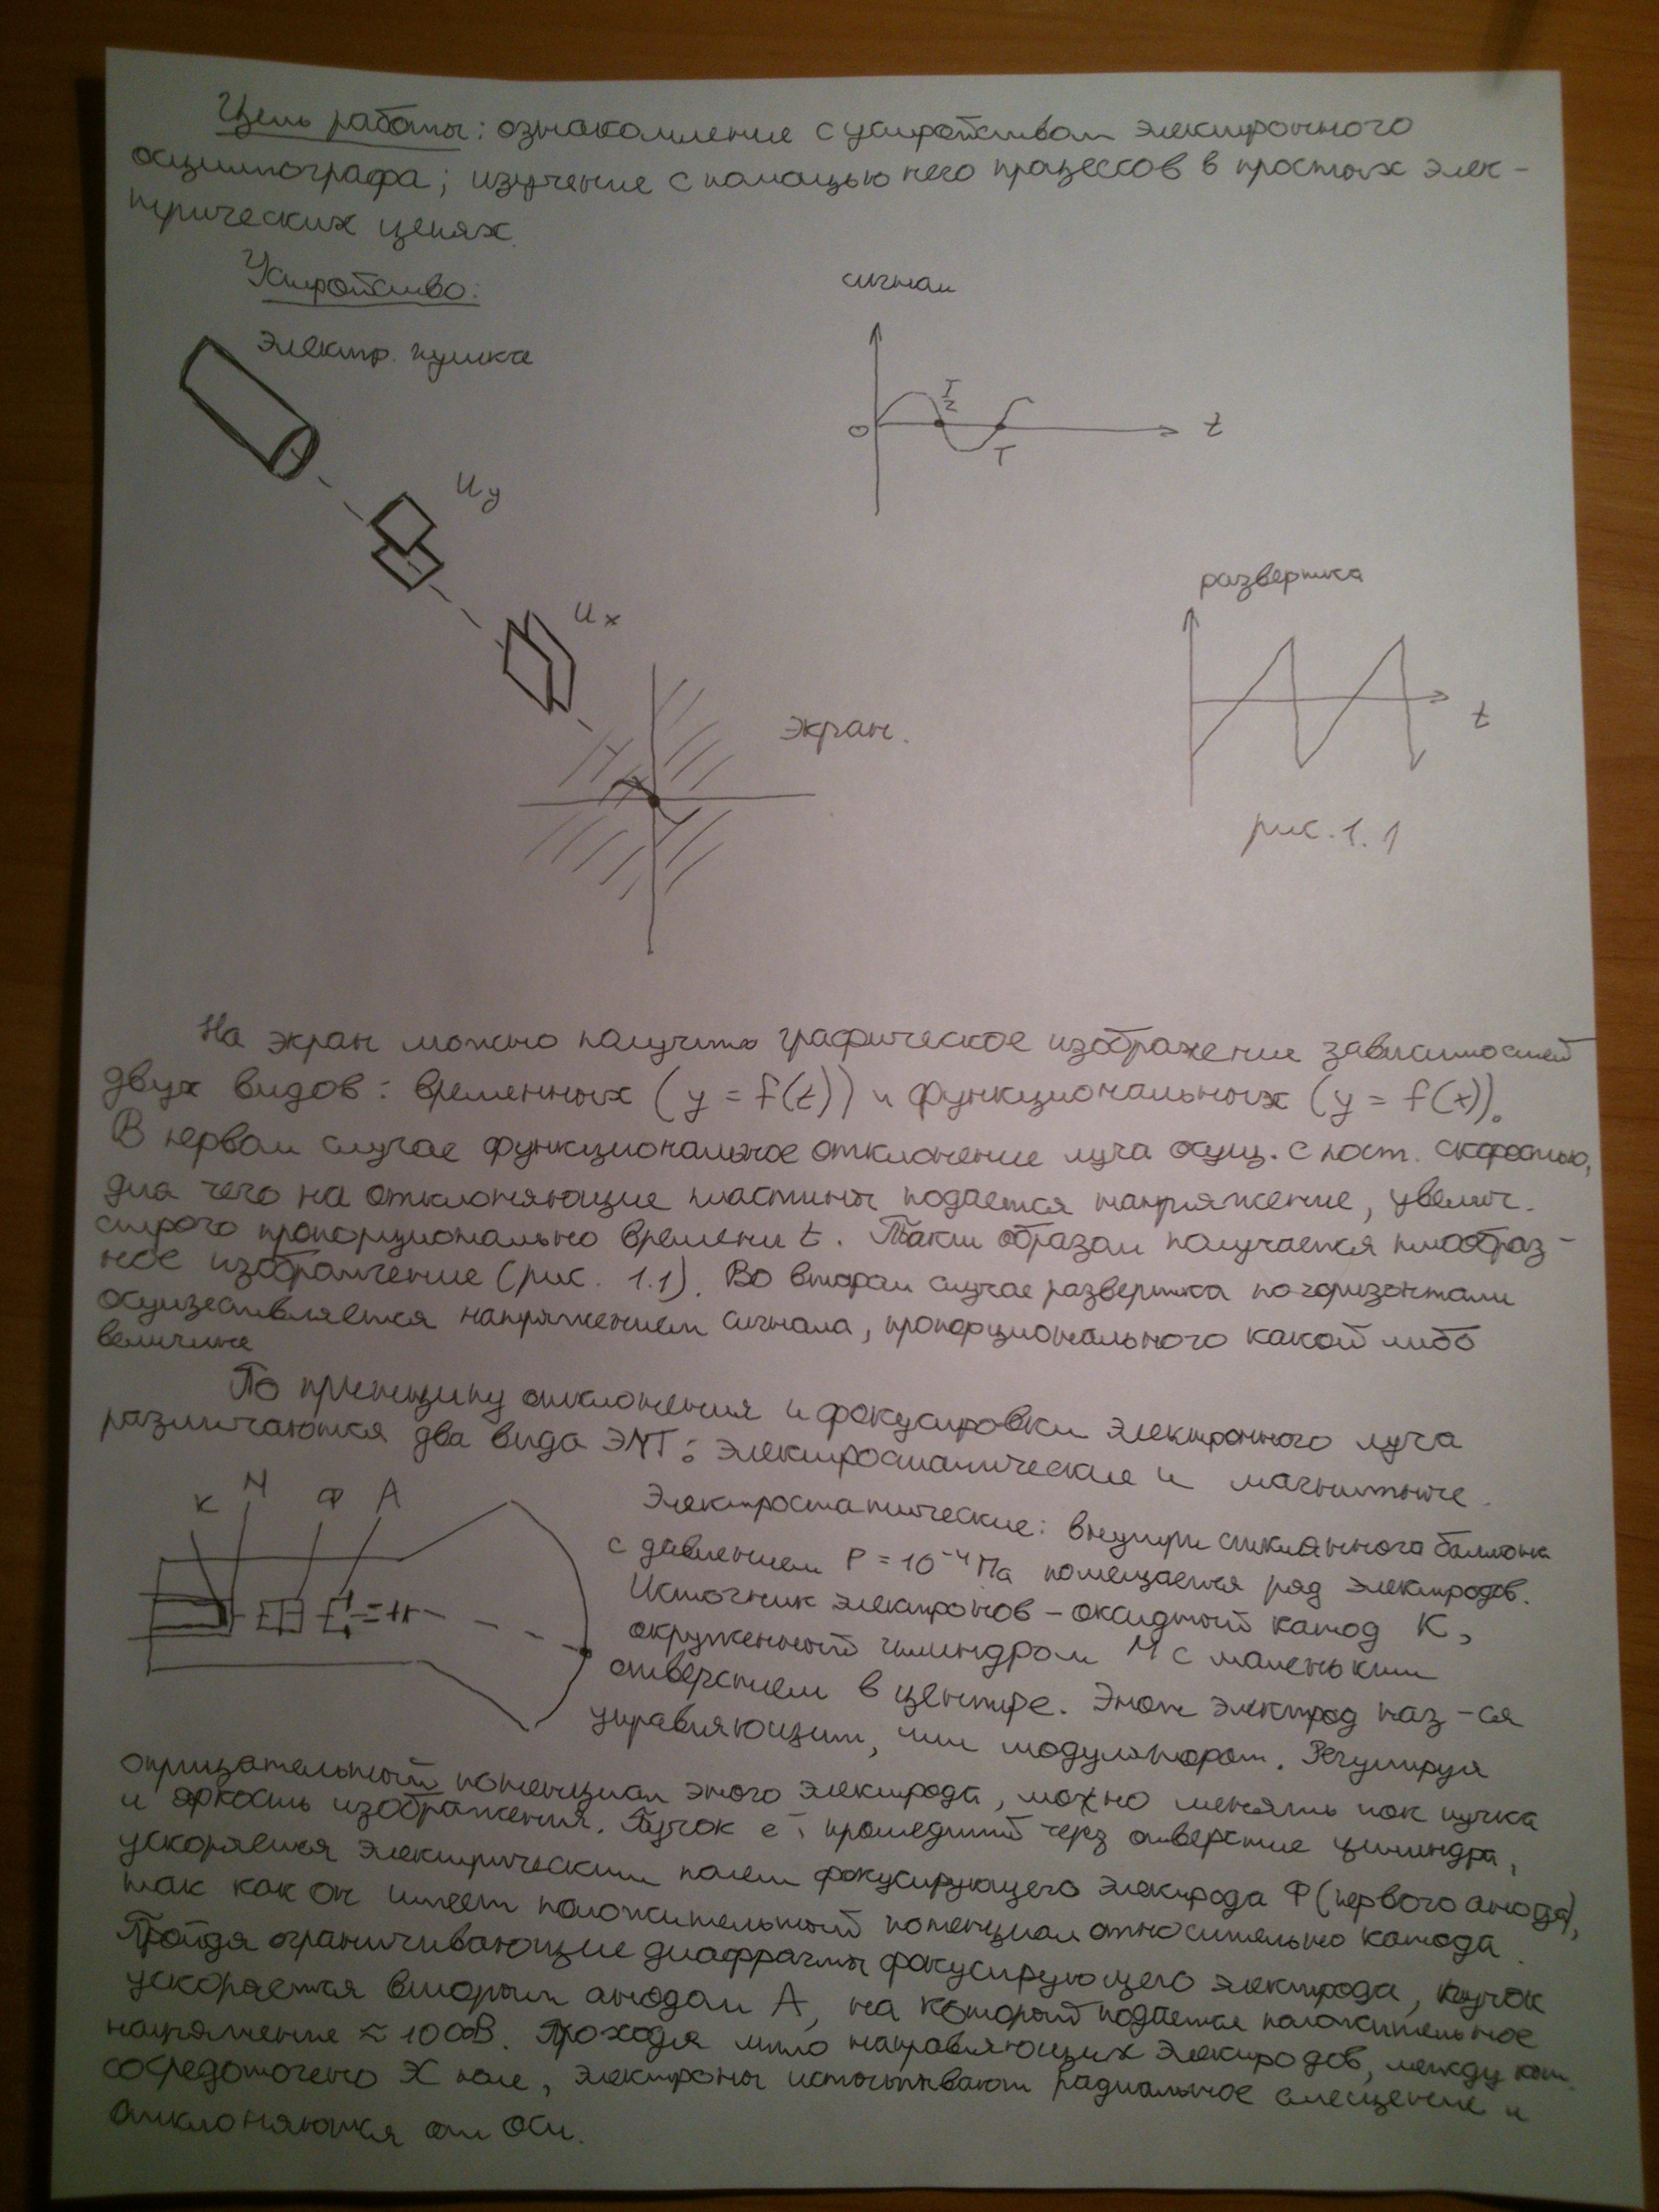 Цель работы: ознакомление с устройством электронного
осциллографа; изучение с помощью него процессов в простых элек-
трических цепях.
Устройство:
сигнал
Электр. пушка
T/2
0
t
T
Uy
развертка
Ux
экран.
t
рис. 1.1
На экран можно получить графическое изображение зависимостей
двух видов: временных (y = f(t)) и функциональных (y = f(x)).
В первом случае функциональное отклонение луча осущ. с пост. скоростью,
для чего на отклоняющие пластины подается напряжение, увелич.
строго пропорционально времени t. Таким образом получается пилообраз-
ное изображение (рис. 1.1). Во втором случае развертка по горизонтали
осуществляется напряжением сигнала, пропорционального какой либо
величине
По принципу отклонения и фокусировки электронного луча
различаются два вида ЭЛТ: электростатические и магнитные.
К М Ф А
Электростатические: внутри стклянного баллона
с давлением P = 10⁻⁴ Па помещается ряд электродов.
Источник электронов - оксидный катод К,
окруженный цилиндром М с маленьким
отверстием в центре. Этот электрод наз-ся
управляющим, или модулятором. Регулируя
отрицательный потенциал этого электрода, можно менять ток пучка
и яркость изображения. Пучок e⁻, прошедший через отверстие цилиндра,
ускоряется электрическим полем фокусирующего электрода Ф (первого анода),
так как он имеет положительный потенциал относительно катода.
Пройдя ограничивающие диафрагмы фокусирующего электрода, пучок
ускоряется вторым анодом А, на который подается положительное
напряжение ≈ 1000В. Проходя мимо направляющих электродов, между кот.
сосредоточено X поле, электроны испытывают радиальное смещение и
отклоняются от оси.